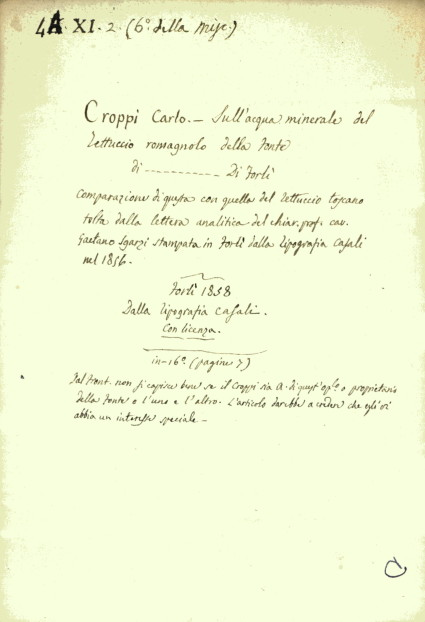 4A. XI. 2. (6.° della Misc.)
Croppi Carlo. — Sull'acqua minerale del
Tettuccio romagnolo della Fonte
di ---------- Di Forlì
Comparazione di questa con quella del Tettuccio toscano
tolta dalla lettera analitica del chiar. prof. cav.
Gaetano Sgarzi stampata in Forlì dalla Tipografia Casali
nel 1856.
Forlì 1858
Dalla Tipografia Casali.
Con licenza.
in-16.° (pagine 7)
Dal front. non si capisce bene se il Croppi sia A. di quest'op.lo o proprietario
della Fonte o l'uno e l'altro. L'articolo darebbe a credere che egli vi
abbia un interesse speciale. —